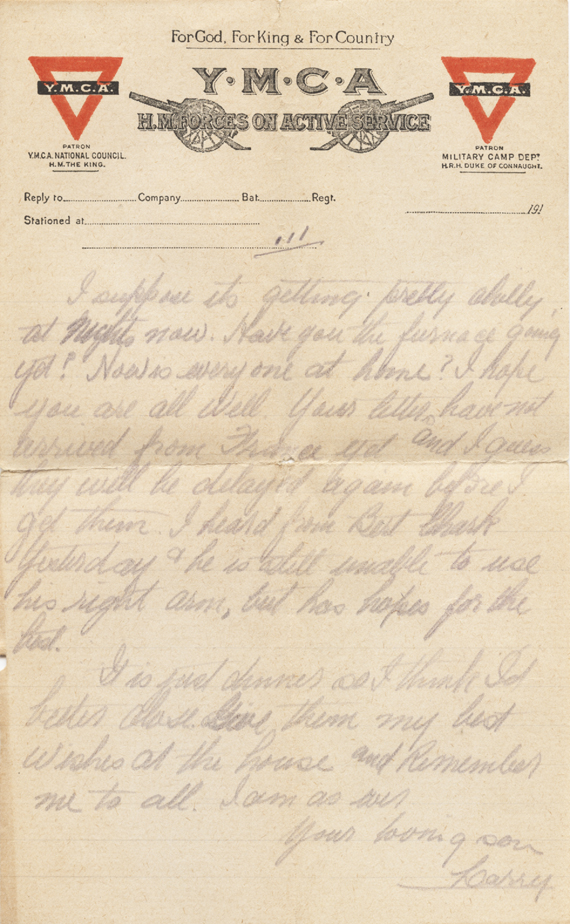 For God, For King & For Country
Y·M·C·A
H.M. FORCES ON ACTIVE SERVICE
Y.M.C.A.
PATRON
Y.M.C.A. NATIONAL COUNCIL.
H.M. THE KING.
Y.M.C.A.
PATRON
MILITARY CAMP DEPT
H.R.H. DUKE OF CONNAUGHT.
Reply to Company Bat. Regt.
191
Stationed at
111
I suppose its getting pretty
at Nights now. Have you the furnace going
yet? How is everyone at home? I hope
you are all well. Your letters have not
arrived from France yet and I guess
they will be delayed again before I
get them. I heard from Bert
Yesterday & he is still unable to use
his right arm, but has hopes for the
best.
It is just dinner so I think I'd
better close. Give them my best
wishes at the house and Remember
me to all. I am as ever
Your loving son
Harry